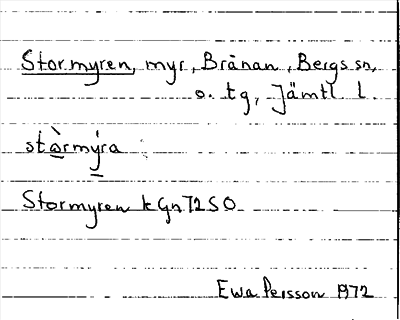 Stormyren, myr, Brånan, Bergs sn,
o. tg, Jämtl l.
stòrmýra
Stormyren kGn72SO
Ewa Persson 1972